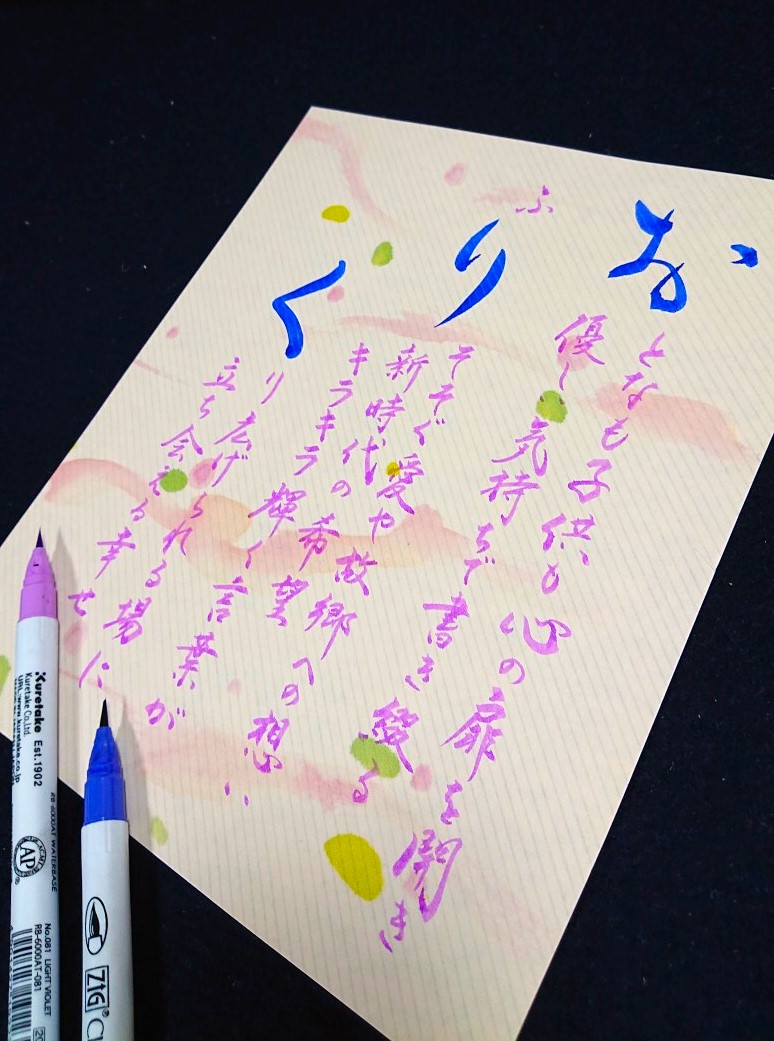 おとなも子供も心の扉を開き
優し気持ちで書き綴る
ふ
り
そそぐ愛や故郷への想い
新時代の希望
キラキラ輝く言葉が
くり広げられる場に
立ち会える幸せ
Kuretake Est.1902
Kuretake Co.,Ltd.
URL:www.kuretake.co.jp
RB-6000AT WATERBASE
AP
No.081 LIGHT VIOLET
RB-6000AT-081
ZIG